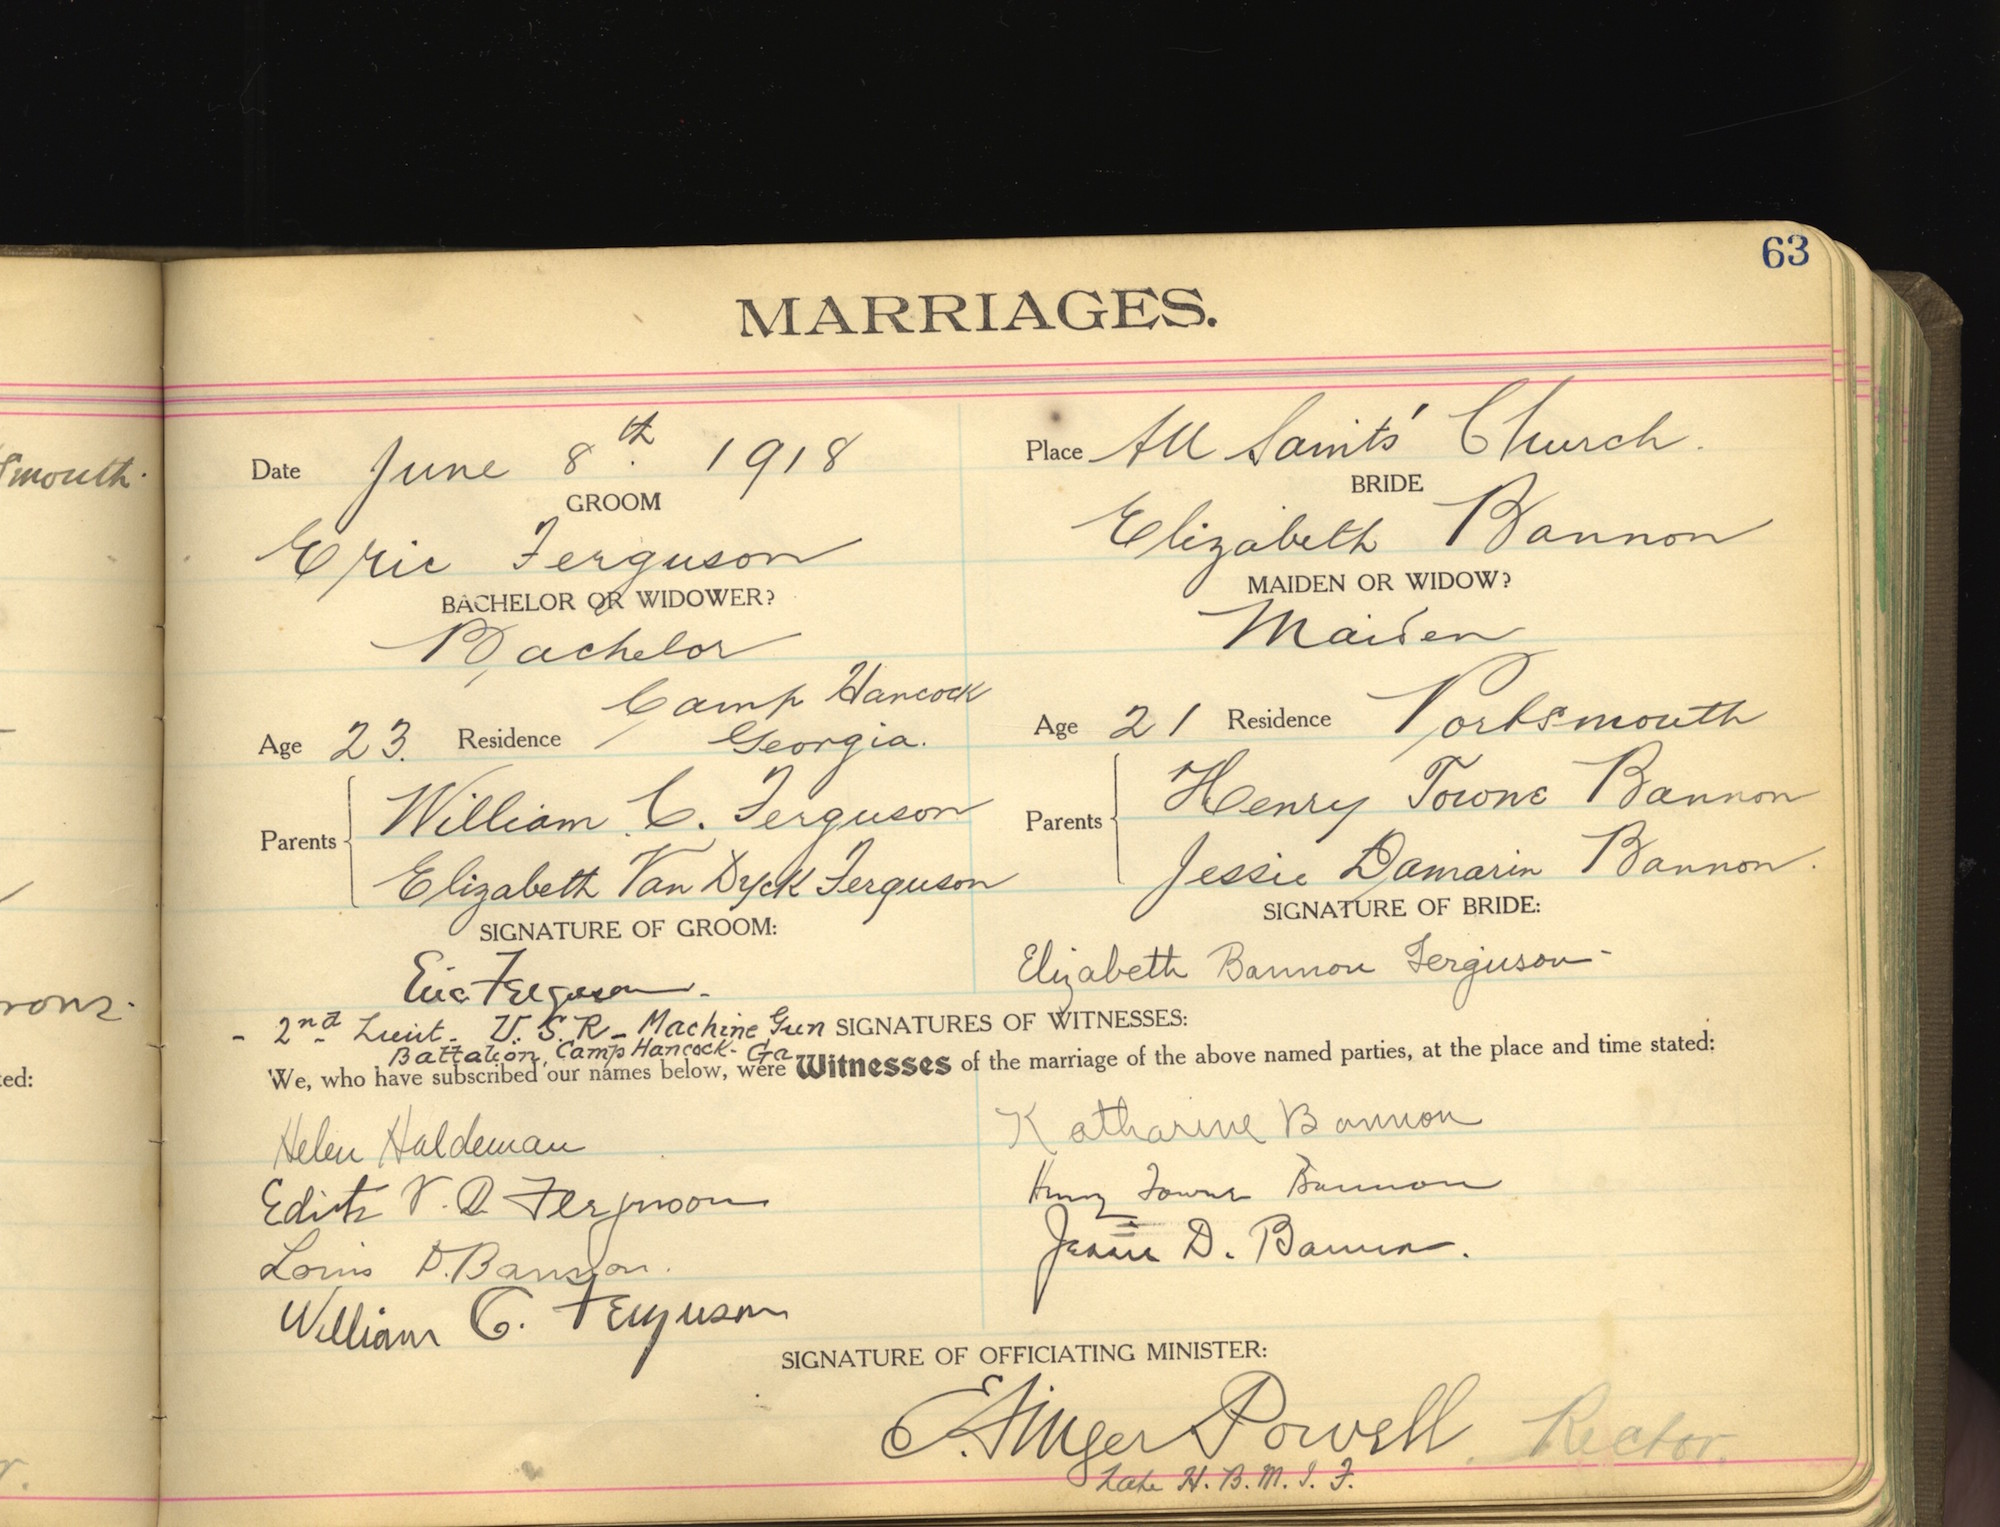 63
MARRIAGES.
Date June 8th. 1918
Place All Saints' Church.
GROOM
BRIDE
Eric Ferguson
Elizabeth Bannon
BACHELOR OR WIDOWER?
MAIDEN OR WIDOW?
Bachelor
Maiden
Age 23. Residence Camp Hancock
Georgia.
Age 21 Residence Portsmouth
Parents William C. Ferguson
Elizabeth Van Dyck Ferguson
Parents Henry Towne Bannon
Jessie Damarin Bannon.
SIGNATURE OF GROOM:
SIGNATURE OF BRIDE:
Eric Ferguson.
Elizabeth Bannon Ferguson
- 2nd Lieut. U.S.R - Machine Gun
Battalion, Camp Hancock - Ga
SIGNATURES OF WITNESSES:
We, who have subscribed our names below, were Witnesses of the marriage of the above named parties, at the place and time stated:
Helen Haldeman
Katharine Bannon
Edith V. D. Ferguson
Henry Towne Bannon
Louis D. Bannon.
Jessie D. Bannon.
William C. Ferguson
SIGNATURE OF OFFICIATING MINISTER:
E. Ainger Powell. Rector.
Late H. B. M. I. F.
mouth.
ted: